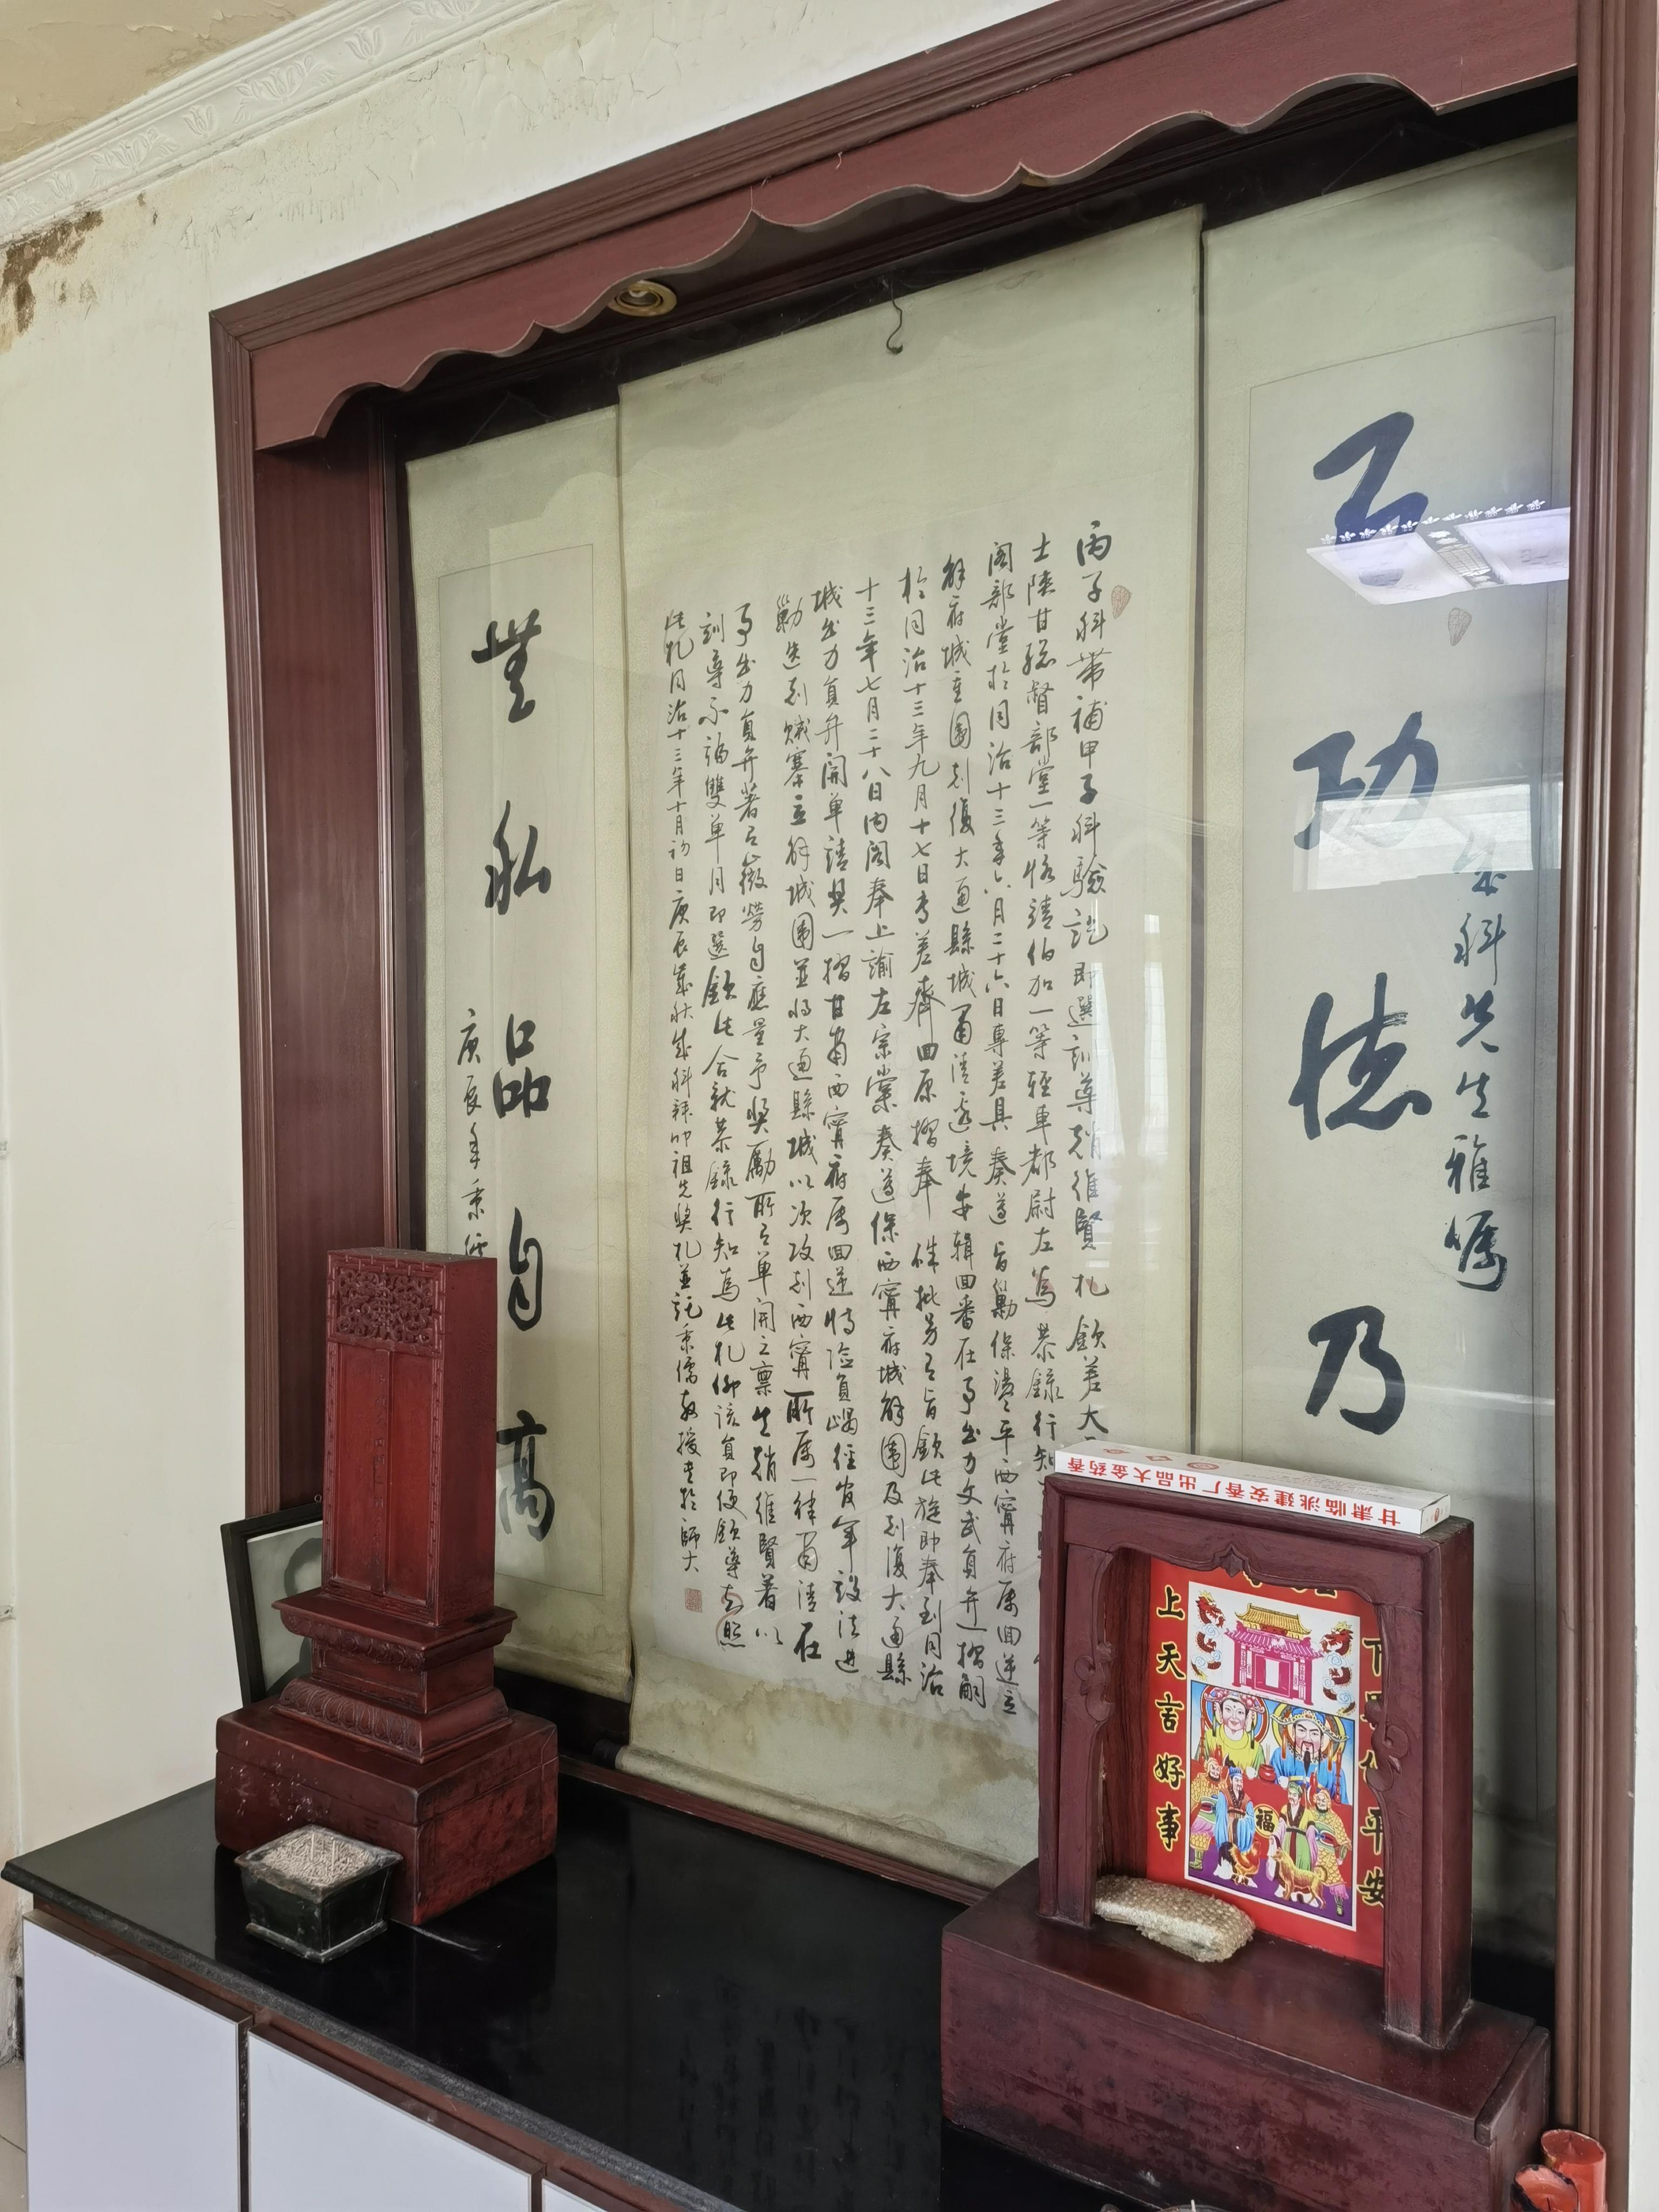 有功德乃
成科先生雅嘱
丙子科带補甲子科驗訖即選訓導趙維賢札欽差大
士陝甘總督部堂一等恪靖伯加一等輕車都尉左為恭錄行知
阁部堂於同治十三年六月二十六日專差具奏遵旨勦保盪平西寧府属回逆立
解府城重圍剋復大通縣城肅清邊境安輯回番在事出力文武員弁一摺嗣
於同治十三年九月十七日專差齎回原摺奉硃批另有旨欽此旋即奉到同治
十三年七月二十八日内阁奉上諭左宗棠奏遵保西寧府城解圍及剋復大通縣
城出力員弁開单請奨一摺甘肅西寧府属回逆恃险負嵎經官軍設法進
勦迭剋贼寨立解城圍並将大通縣城以次攻剋西寧所属一律肅清在
事出力員弁著有微勞自應量予奨勵所有单開之禀生趙維賢着以
訓導不論雙单月即選欽此合就恭錄行知為此札仰該員即便欽遵查照
此札同治十三年十月初日庚辰歲秋成科拜叩祖先奨札並託秉儒教授書於師大
無私品自高
庚辰年秉儒
甘肃临洮建安香厂出品大金药香
上天言好事
平安
福